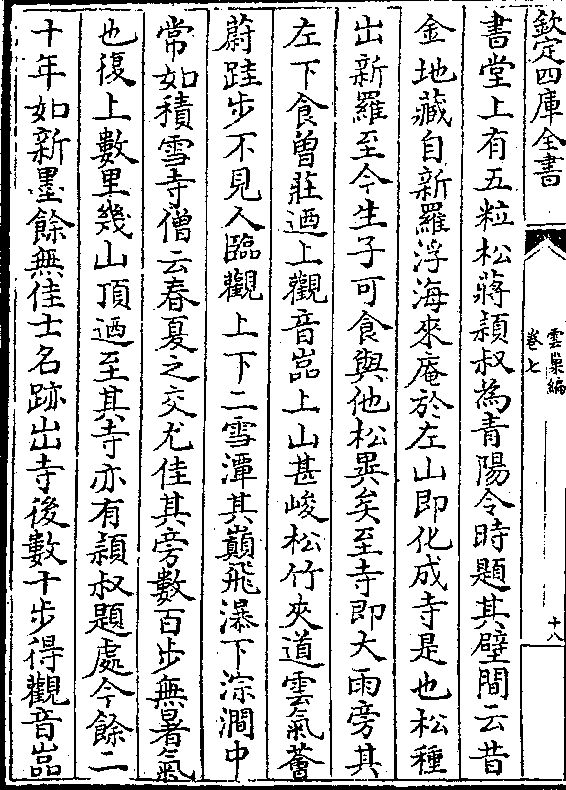 欽定四庫全書
雲巢編
卷七
十八
書堂上有五粒松蔣頴叔為青陽令時題其壁間云昔
金地藏自新羅浮海來庵於左山即化成寺是也松種
出新羅至今生子可食與他松異矣至寺即大雨旁其
左下食曽莊迺上觀音嵓上山甚峻松竹夾道雲氣薈
蔚跬步不見人臨觀上下二雪潭其巔飛瀑下淙澗中
常如積雪寺僧云春夏之交尤佳其旁數百步無暑氣
也復上數里幾山頂迺至其寺亦有頴叔題處今餘二
十年如新墨餘無佳士名跡出寺後數十步得觀音嵓